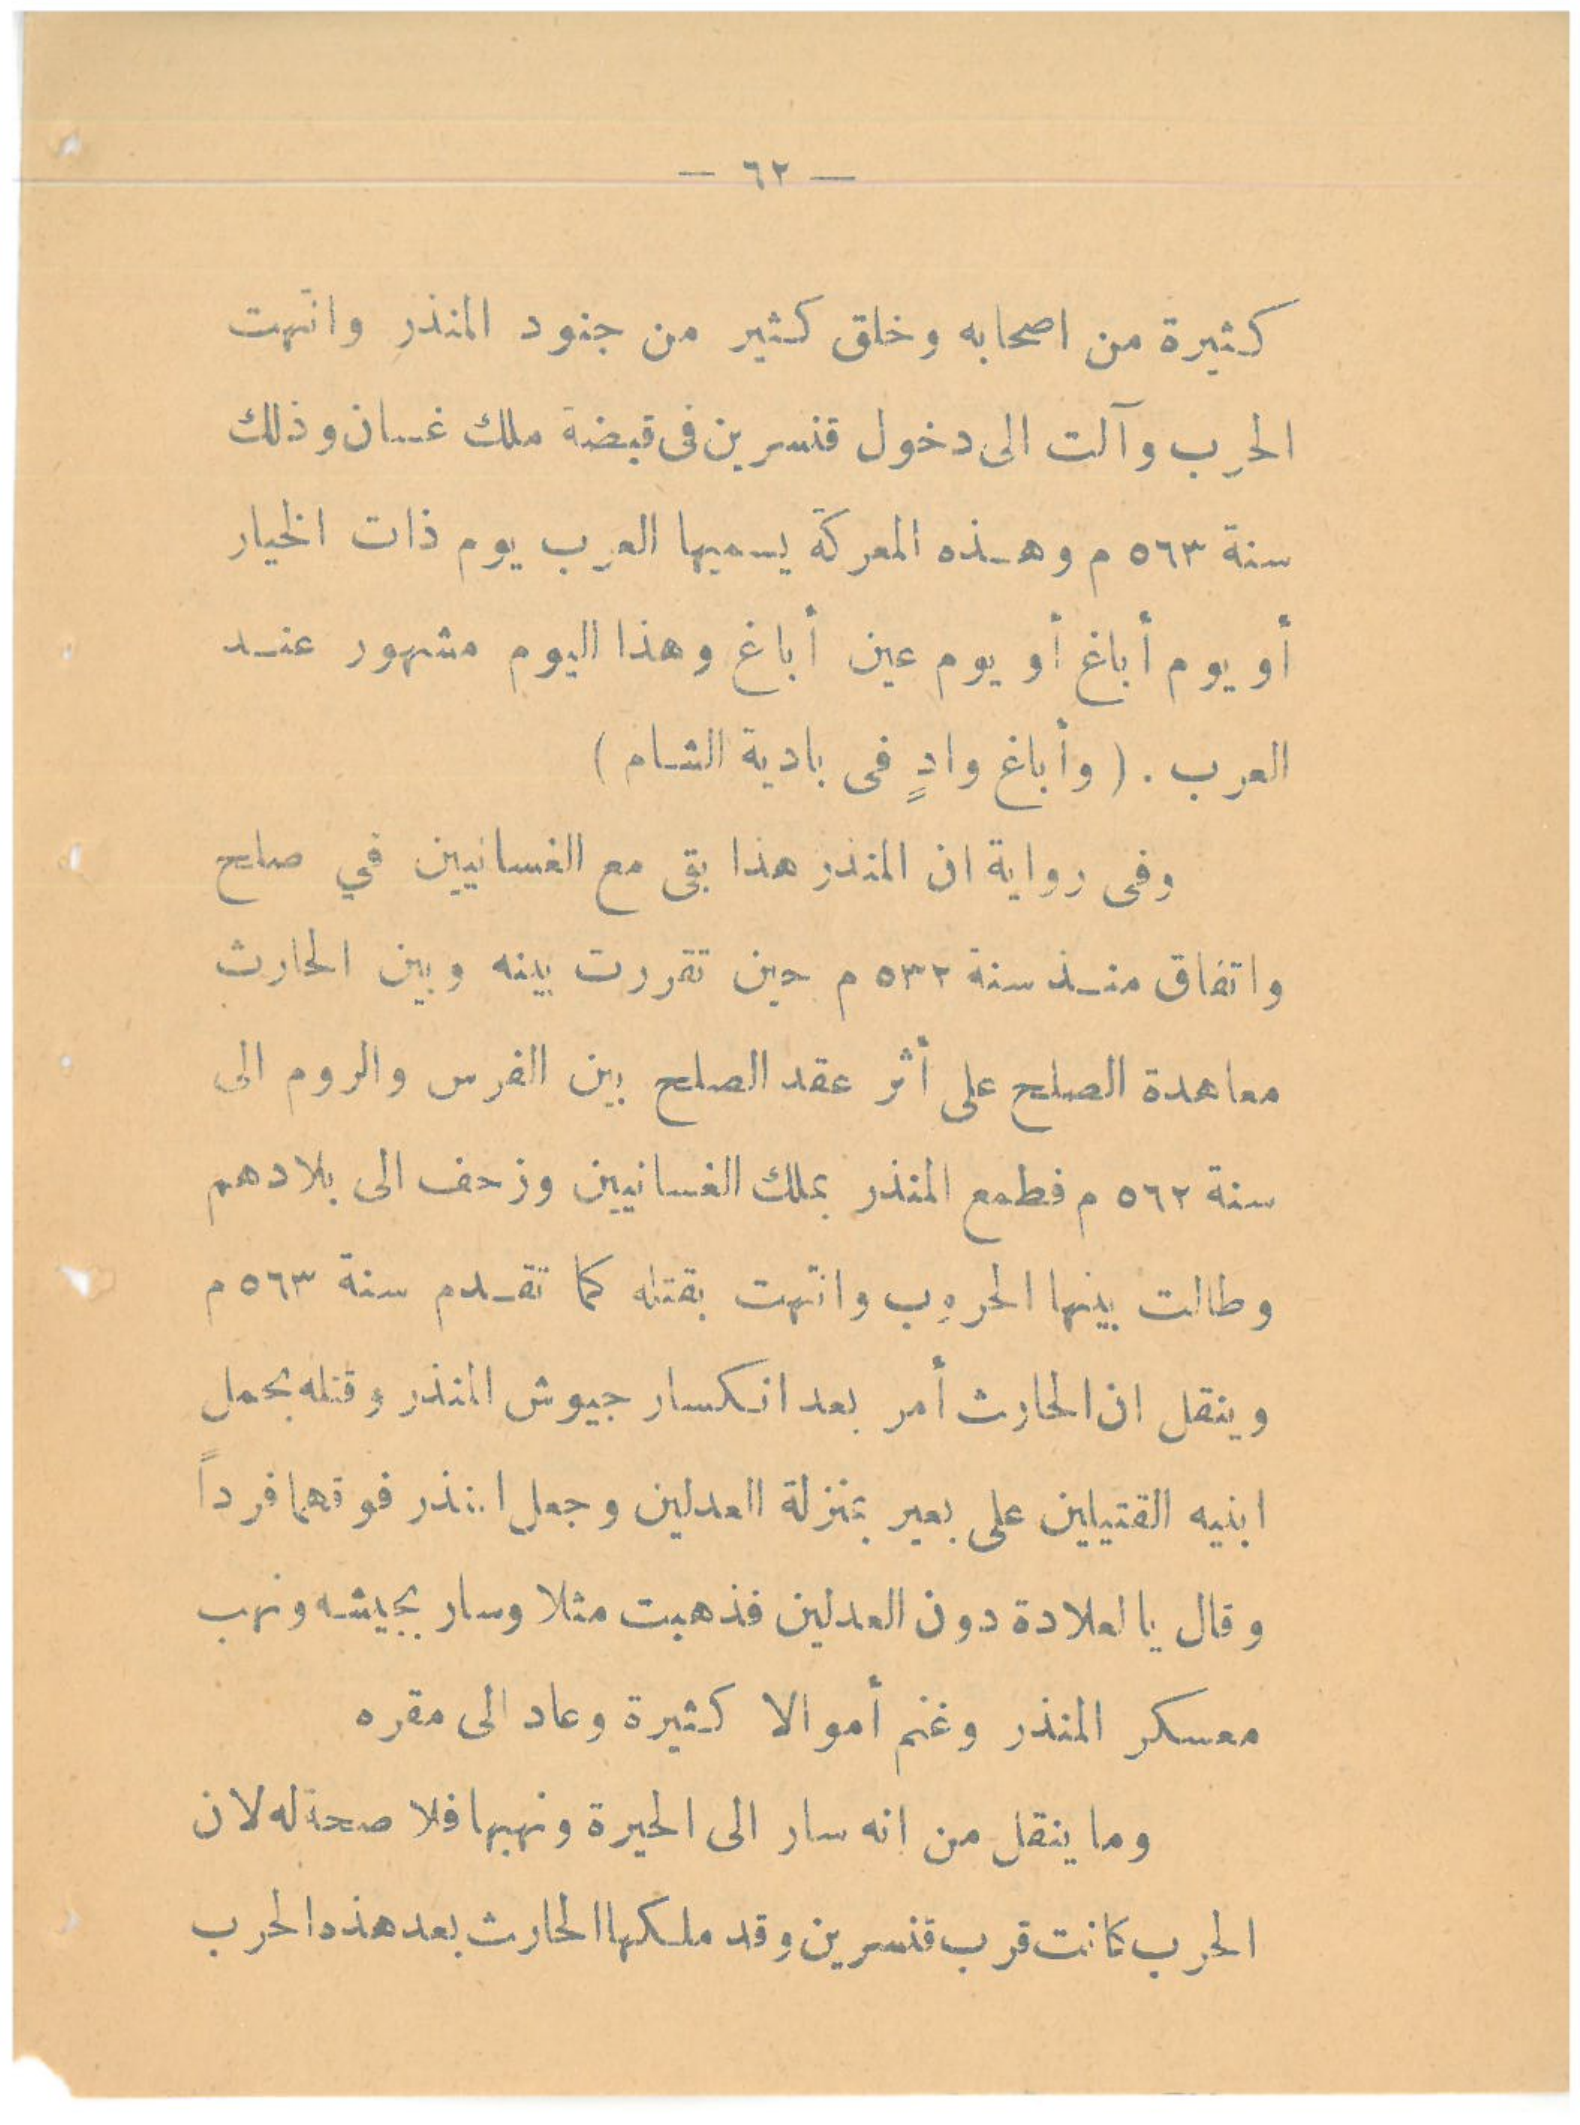 — ٦٢ —
كثيرة من اصحابه وخلق كثير من جنود المنذر وانتهت
الحرب وآلت الى دخول قنسرين فى قبضة ملك غسان وذلك
سنة ٥٦٣ م وهذه المعركة يسميها العرب يوم ذات الخيار
أو يوم أباغ أو يوم عين أباغ وهذا اليوم مشهور عند
العرب . ( وأباغ وادٍ فى بادية الشام )
وفى رواية ان المنذر هذا بقى مع الغسانيين في صلح
واتفاق منذ سنة ٥٣٢ م حين تقررت بينه وبين الحارث
معاهدة الصلح على أثر عقد الصلح بين الفرس والروم الى
سنة ٥٦٢ م فطمع المنذر بملك الغسانيين وزحف الى بلادهم
وطالت بينها الحرب وانتهت بقتله كما تقدم سنة ٥٦٣ م
وينقل ان الحارث أمر بعد انكسار جيوش المنذر وقتله بحمل
ابنيه القتيلين على بعير بمنزلة العدلين وجعل المنذر فوقهما فرداً
وقال يا لعلادة دون العدلين فذهبت مثلا وسار بجيشه ونهب
معسكر المنذر وغنم أموالا كثيرة وعاد الى مقره
وما ينقل من انه سار الى الحيرة ونهبها فلا صحة له لان
الحرب كانت قرب قنسرين وقد ملكها الحارث بعد هذه الحرب